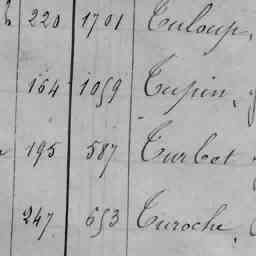 220 1701 Tuloup,
164 1059 Tupin,
195 587 Turbot
247 653 Turoche,